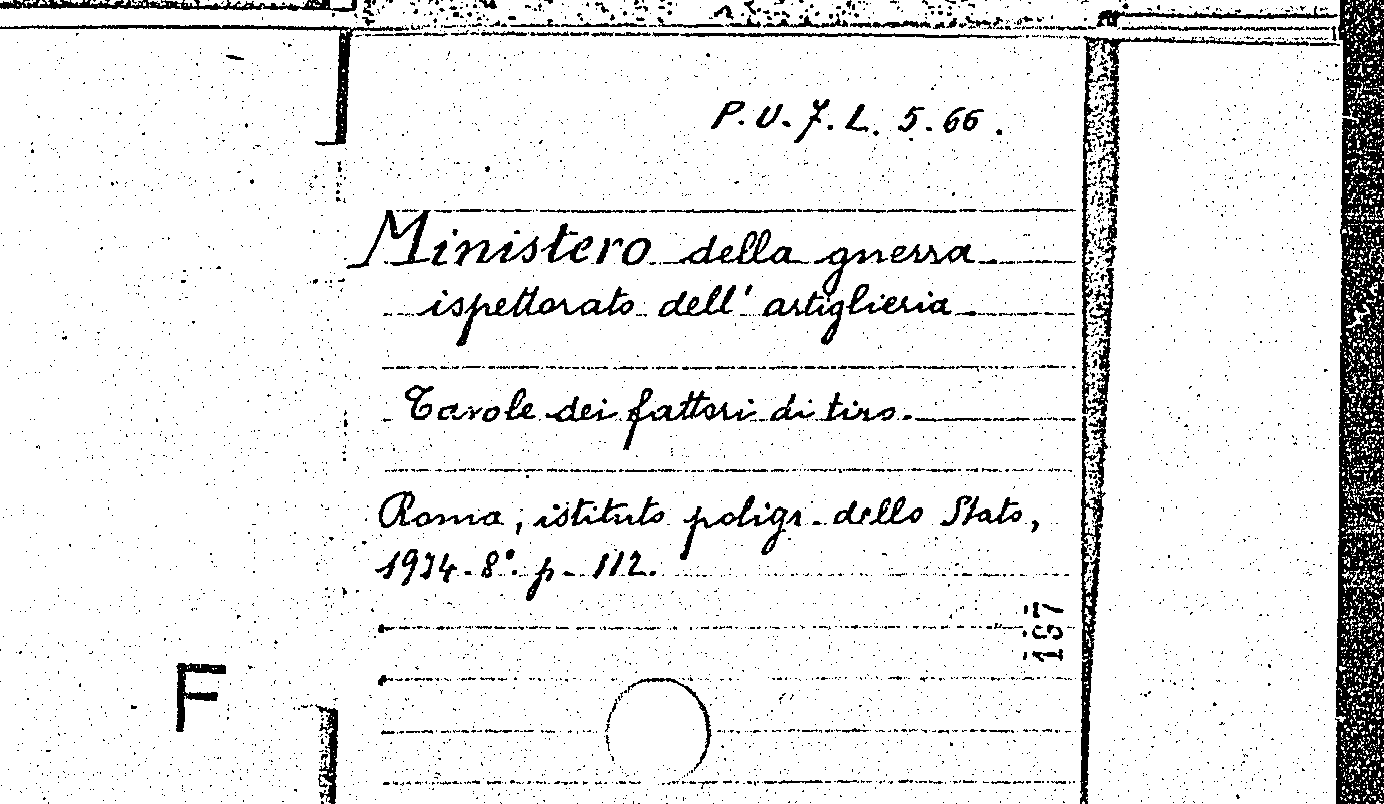 P.U.7.L. 5.66.
Ministero della guerra
ispettorato dell' artiglieria.
Tavole dei fattori di tiro.
Roma, istituto poligr. dello Stato,
1934. 8°. p. 112.
167
F